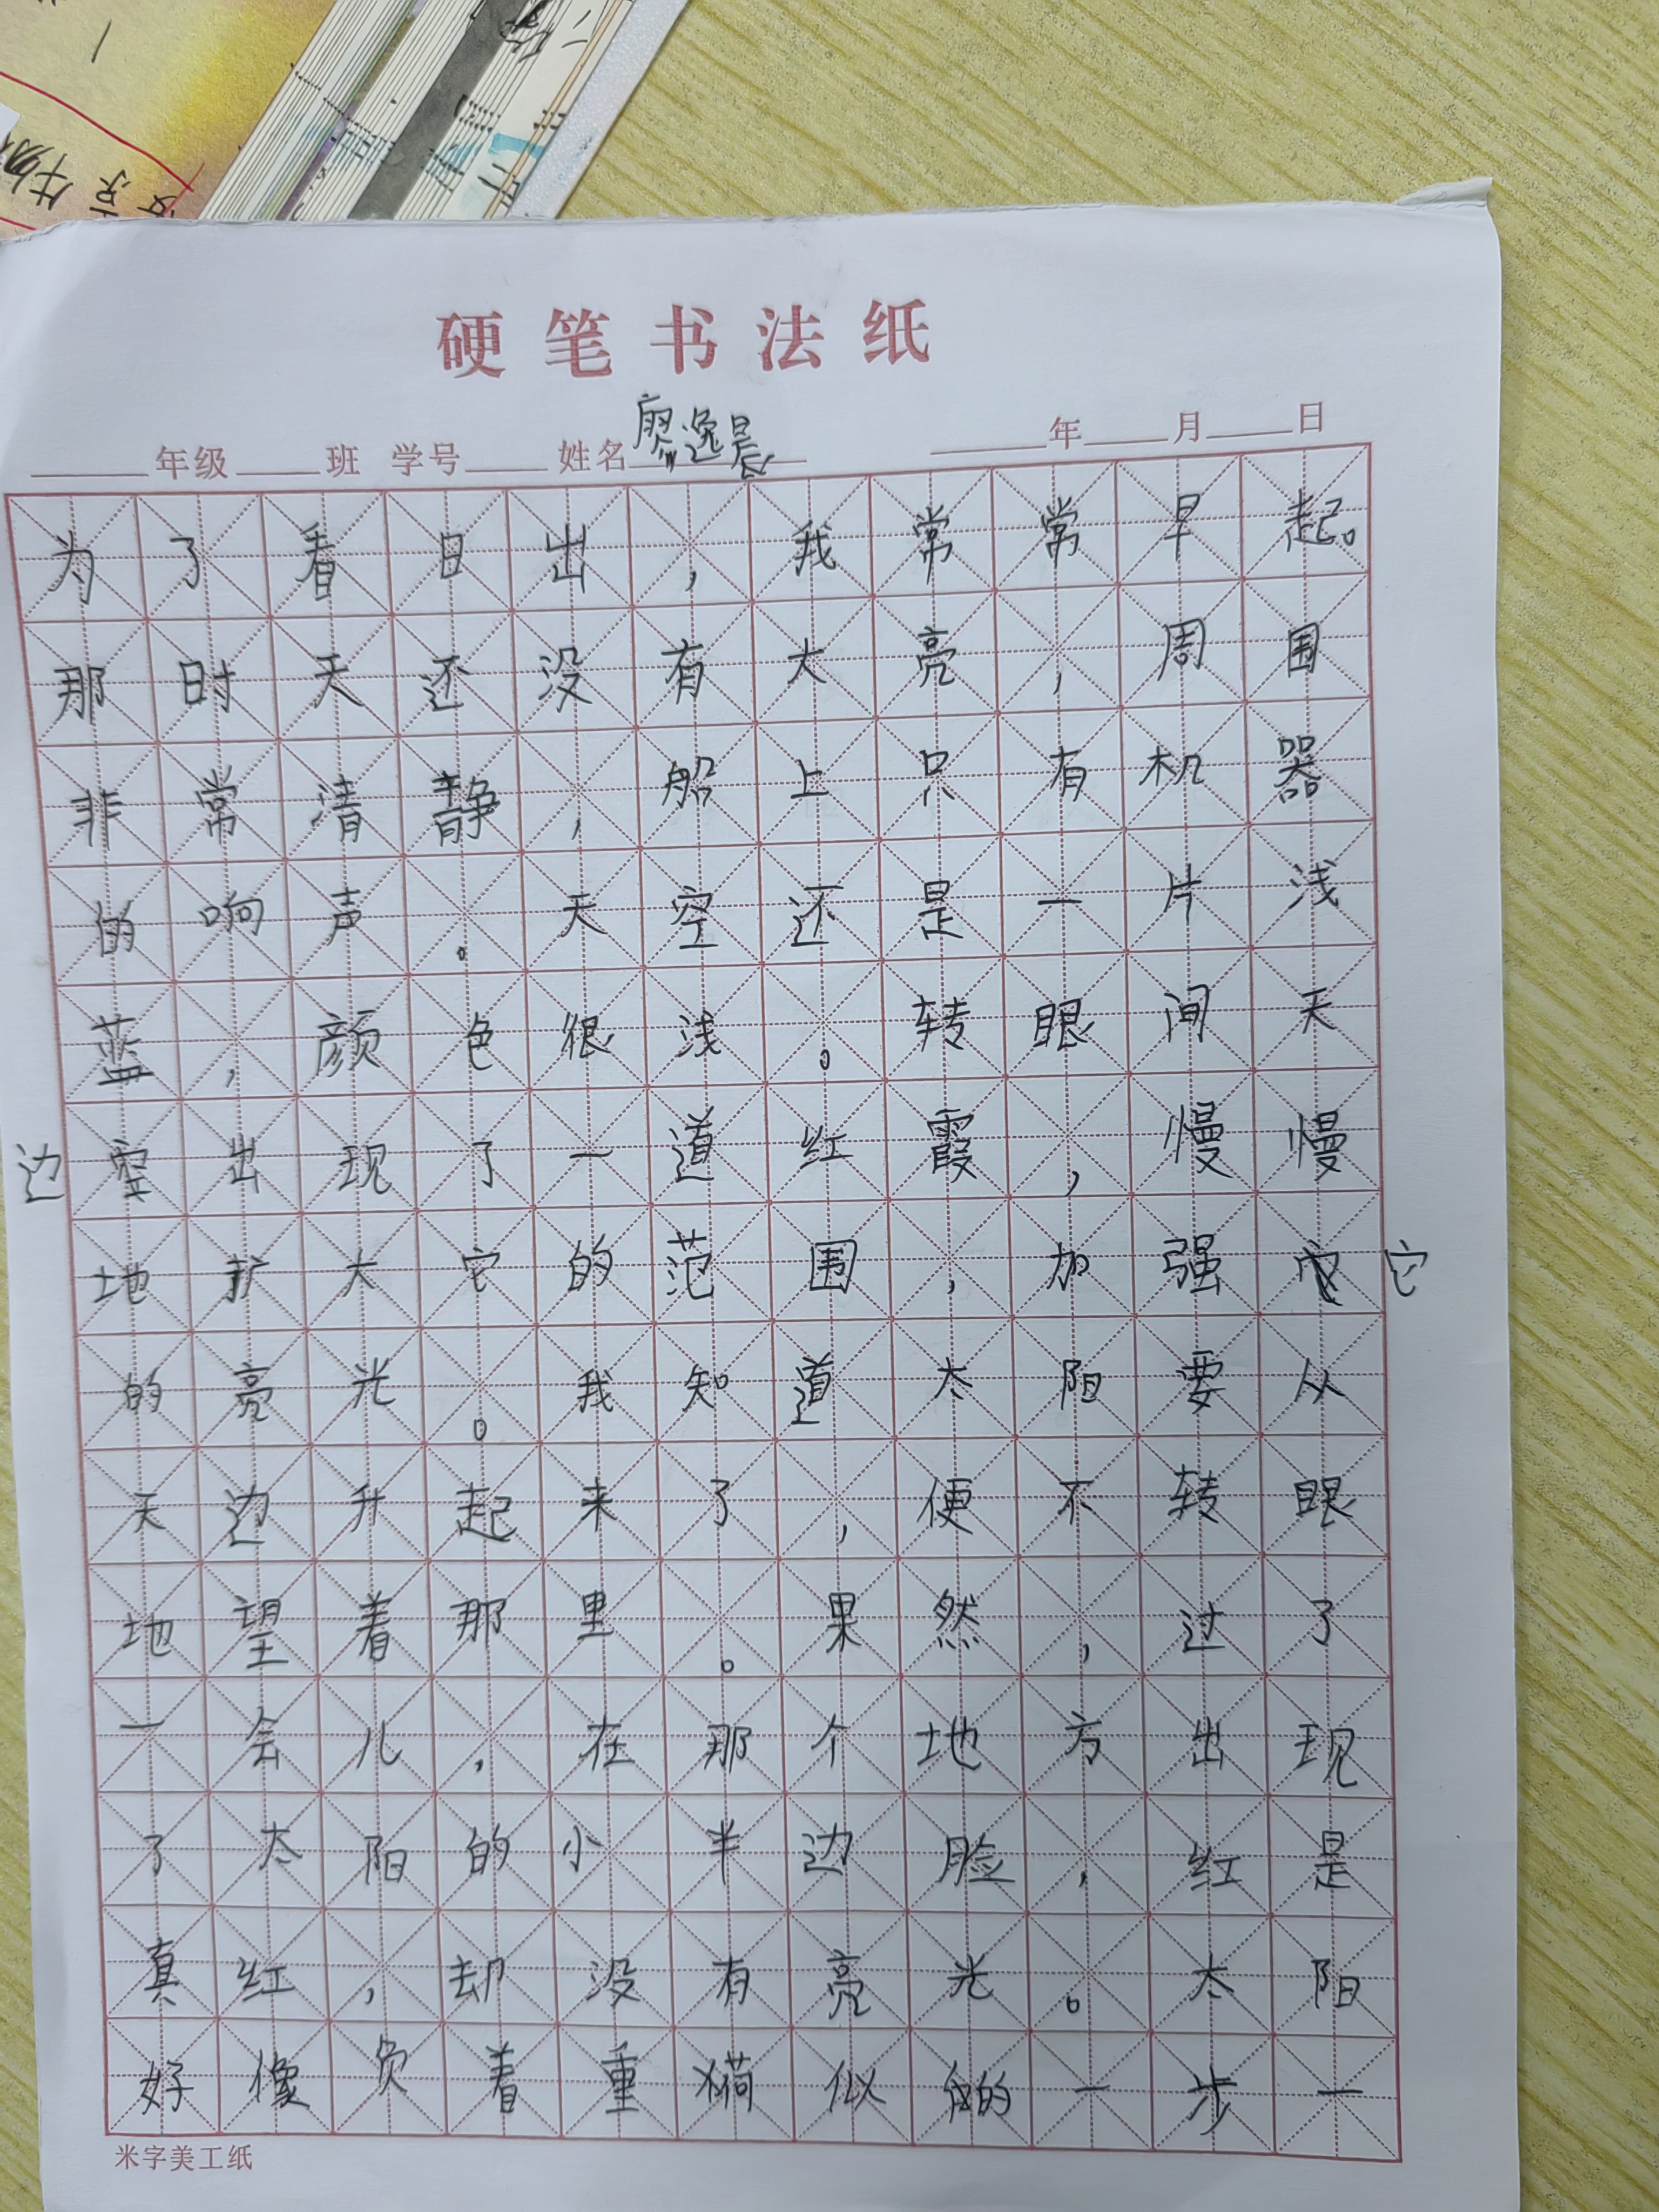 硬笔书法纸
年级 班 学号 姓名 廖逸晨 年 月 日
为了看日出，我常常早起。
那时天还没有大亮，周围
非常清静，船上只有机器
的响声。天空还是一片浅
蓝，颜色很浅。转眼间天
边空出现了一道红霞，慢慢
地扩大它的范围，加强它
的亮光。我知道太阳要从
天边升起来了，便不转眼
地望着那里。果然，过了
一会儿，在那个地方出现
了太阳的小半边脸，红是
真红，却没有亮光。太阳
好像负着重荷似的一步一
米字美工纸